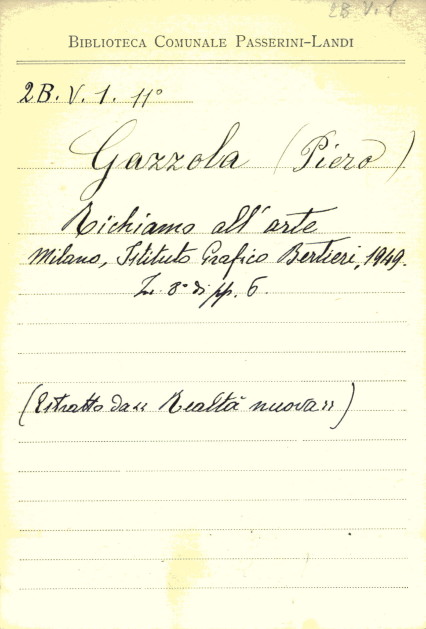 2B. V. 1
BIBLIOTECA COMUNALE PASSERINI-LANDI
2B. V. 1. 11°
Gazzola (Piero)
Richiamo all'arte
Milano, Istituto Grafico Bertieri, 1949.
In 8° di pp. 6.
(Estratto da « Realtà nuova »)